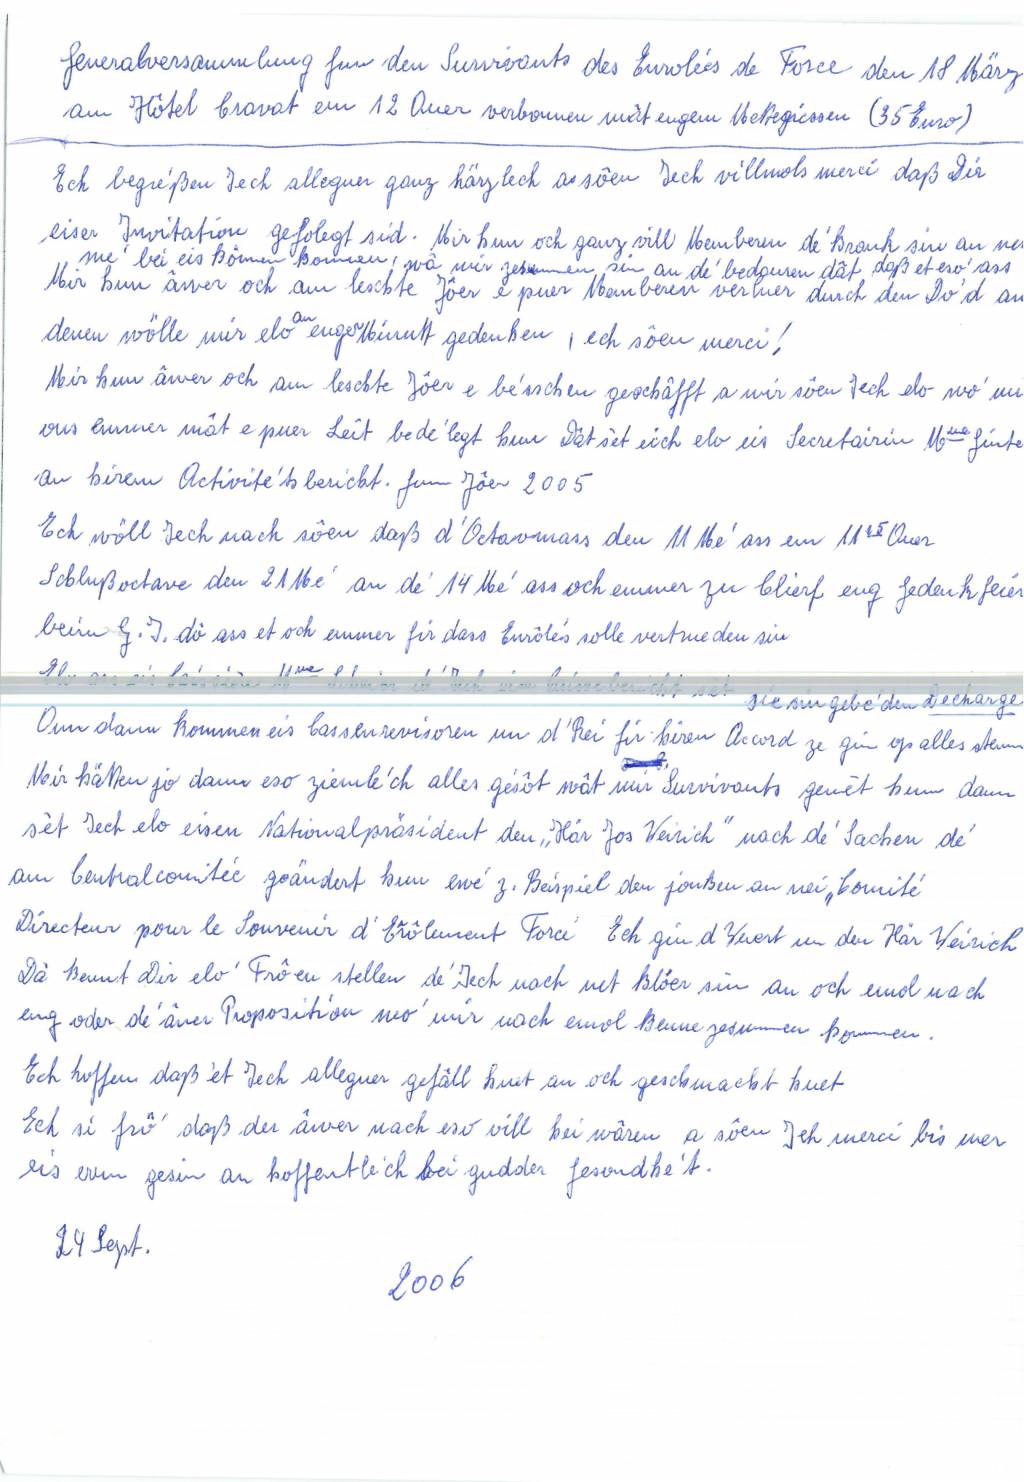 Generalversammlung fun den Survivants des Enrolés de Force den 18 März
am Hôtel Cravat em 12 Auer verbonnen mät engem Mettegiessen (35 Euro)
Ech begréßen Iech alleguer ganz härzlech a sôen Iech villmols merci daß Dir
eiser Invitation gefolegt sid. Mir hun och ganz vill Memberen dé krank sin an net
mé bei eis kömen konnen, wä mir zesummen sin, an dé bedauren dât daß et esó ass
Mir hun âwer och am leschte Jôer e puer Memberen verluer durch den Dó'd an
denen wölle mir elo an enger Minutt gedenken, ech sôen merci!
Mir hun âwer och am leschte Jôer e bésschen geschäfft a mir sôen Iech elo wó mir
ons ëmmer mät e puer Leit bedé'legt hun Dät sét eich elo eis Secretairin Mme Ginte
an hirem Activitétsbericht. fum Jôer 2005
Ech wöll Iech nach sôen daß d'Octavmass den 11 Mé ass em 11 Auer
Schlußoctave den 21 Mé an dé 14 Mé ass och emmer zu Clierf eng Gedenkfeier
beim G.I. dô ass et och emmer fir dass Enrôlés solle vertrueden sin
Elo ass eis Mme dé Iech den Keissebericht sét
sie sin gebé'den Decharge
Dun dann kommen eis Cassenrevisoren un d'Rei fir hiren Accord ze gin op alles stemm
Mir hätten jo dann esó ziemléch alles gesôt wât mir Survivants gemêt hun dann
sèt Iech elo eisen Nationalpräsident den „Här Jos Weirich" nach dé Sachen dé
am Centralcomitée geändert hun ewé z. Beispiel den jonken an nei „Comité
Directeur pour le Souvenir d'Erôlement Forcé Ech gin d'Wuert un den Här Weirich
Dä kennt Dir eló Frôen stellen dé Iech nach net klôer sin an och emol nach
eng oder dé âner Proposition wó mir nach emol kenne zesummen kommen.
Ech hoffen daß et Iech alleguer gefäll huet an och geschmacht huet
Ech si frô daß der âwer nach esó vill hei wâren a sôen Ieh merci bis mer
eis erem gesin an hoffentlech bei gudder Gesondhé't.
24 Sept.
2006